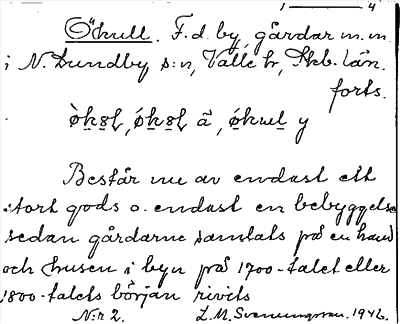 1 — 4
Ökull. F.d. by, gårdar m.m.
i N. Lundby s:n, Valle hd, Skb. län.
forts.
ò̱kəl, ó̱kəl ä, ó̱kul y
Består nu av endast ett
stort gods o. endast en bebyggelse
sedan gårdarne samlats på en hand
och husen i byn på 1700-talet eller
1800-talets början rivits
N:r 2. L.M. Svanungsson. 1946.